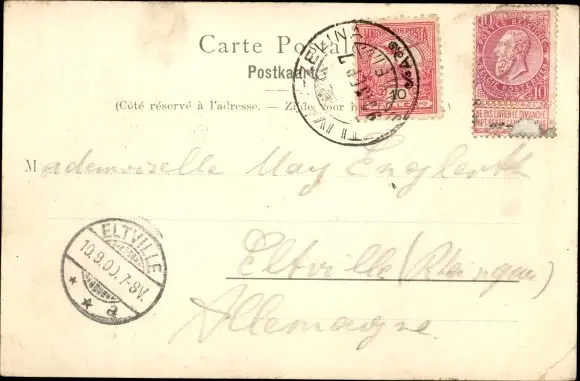 Carte Postale
Postkaart
(Côté réservé à l'adresse. — Zijde voor
10 10
NE PAS LIVRER LE DIMANCHE
Mademoiselle May Englerth
ELTVILLE
10.9.00. 7-8V.
* * a
Eltville (Rheingau)
Allemagne